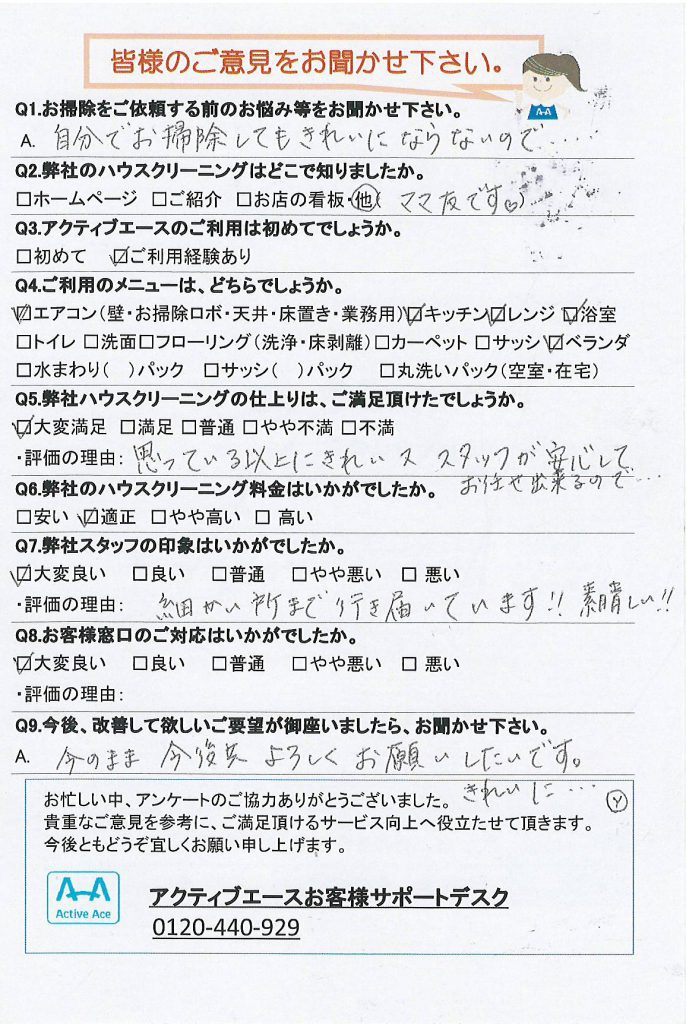 皆様のご意見をお聞かせ下さい。
Q1.お掃除をご依頼する前のお悩み等をお聞かせ下さい。
A. 自分でお掃除してもきれいにならないので.....
Q2.弊社のハウスクリーニングはどこで知りましたか。
□ホームページ □ご紹介 □お店の看板・他( ママ友です♡)
Q3.アクティブエースのご利用は初めてでしょうか。
□初めて ☑ご利用経験あり
Q4.ご利用のメニューは、どちらでしょうか。
☑エアコン(壁・お掃除ロボ・天井・床置き・業務用)☑キッチン☑レンジ ☑浴室
□トイレ □洗面□フローリング(洗浄・床剥離)□カーペット □サッシ☑ベランダ
□水まわり( )パック □サッシ( )パック □丸洗いパック(空室・在宅)
Q5.弊社ハウスクリーニングの仕上りは、ご満足頂けたでしょうか。
☑大変満足 □満足 □普通 □やや不満 □不満
・評価の理由: 思っている以上にきれい スタッフが安心して
お任せ出来るので...
Q6.弊社のハウスクリーニング料金はいかがでしたか。
□安い ☑適正 □やや高い □ 高い
Q7.弊社スタッフの印象はいかがでしたか。
☑大変良い □良い □普通 □やや悪い □ 悪い
・評価の理由: 細かい所まで行き届いています!! 素晴しい!!
Q8.お客様窓口のご対応はいかがでしたか。
☑大変良い □良い □普通 □やや悪い □ 悪い
・評価の理由:
Q9.今後、改善して欲しいご要望が御座いましたら、お聞かせ下さい。
A. 今のまま 今後共 よろしく お願いしたいです。
きれいに...
お忙しい中、アンケートのご協力ありがとうございました。 Y
貴重なご意見を参考に、ご満足頂けるサービス向上へ役立たせて頂きます。
今後ともどうぞ宜しくお願い申し上げます。
Active Ace
アクティブエースお客様サポートデスク
0120-440-929